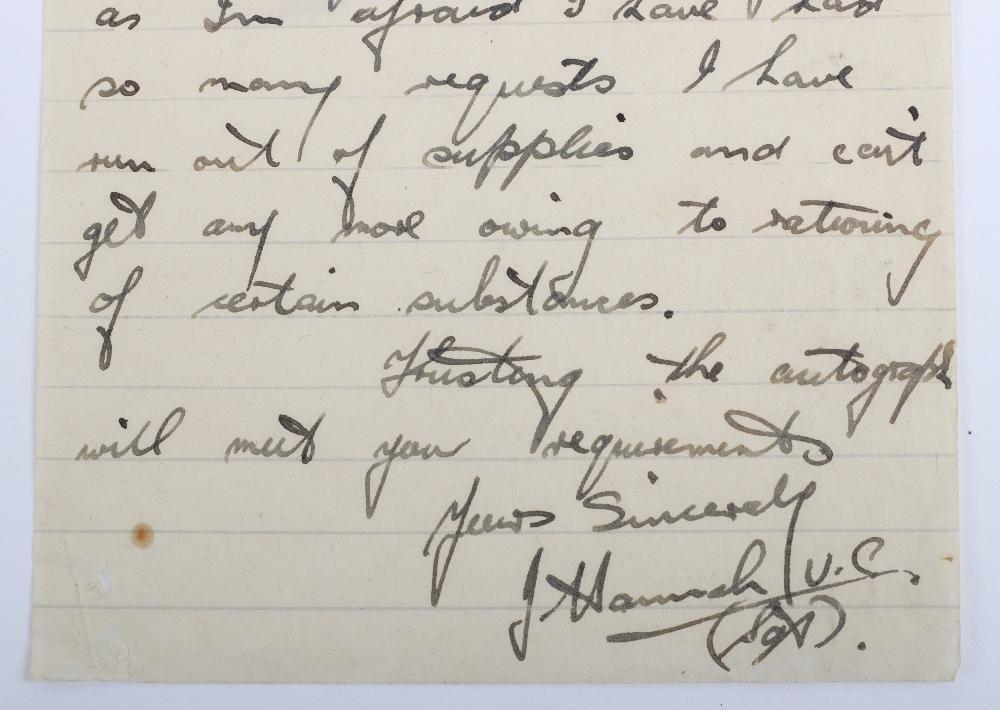 as I'm afraid I have had
so many requests I have
run out of supplies and can't
get any more owing to rationing
of certain substances.
Trusting the autograph
will meet your requirements
Yours Sincerely
J Hannah V.C.
(Sgt).